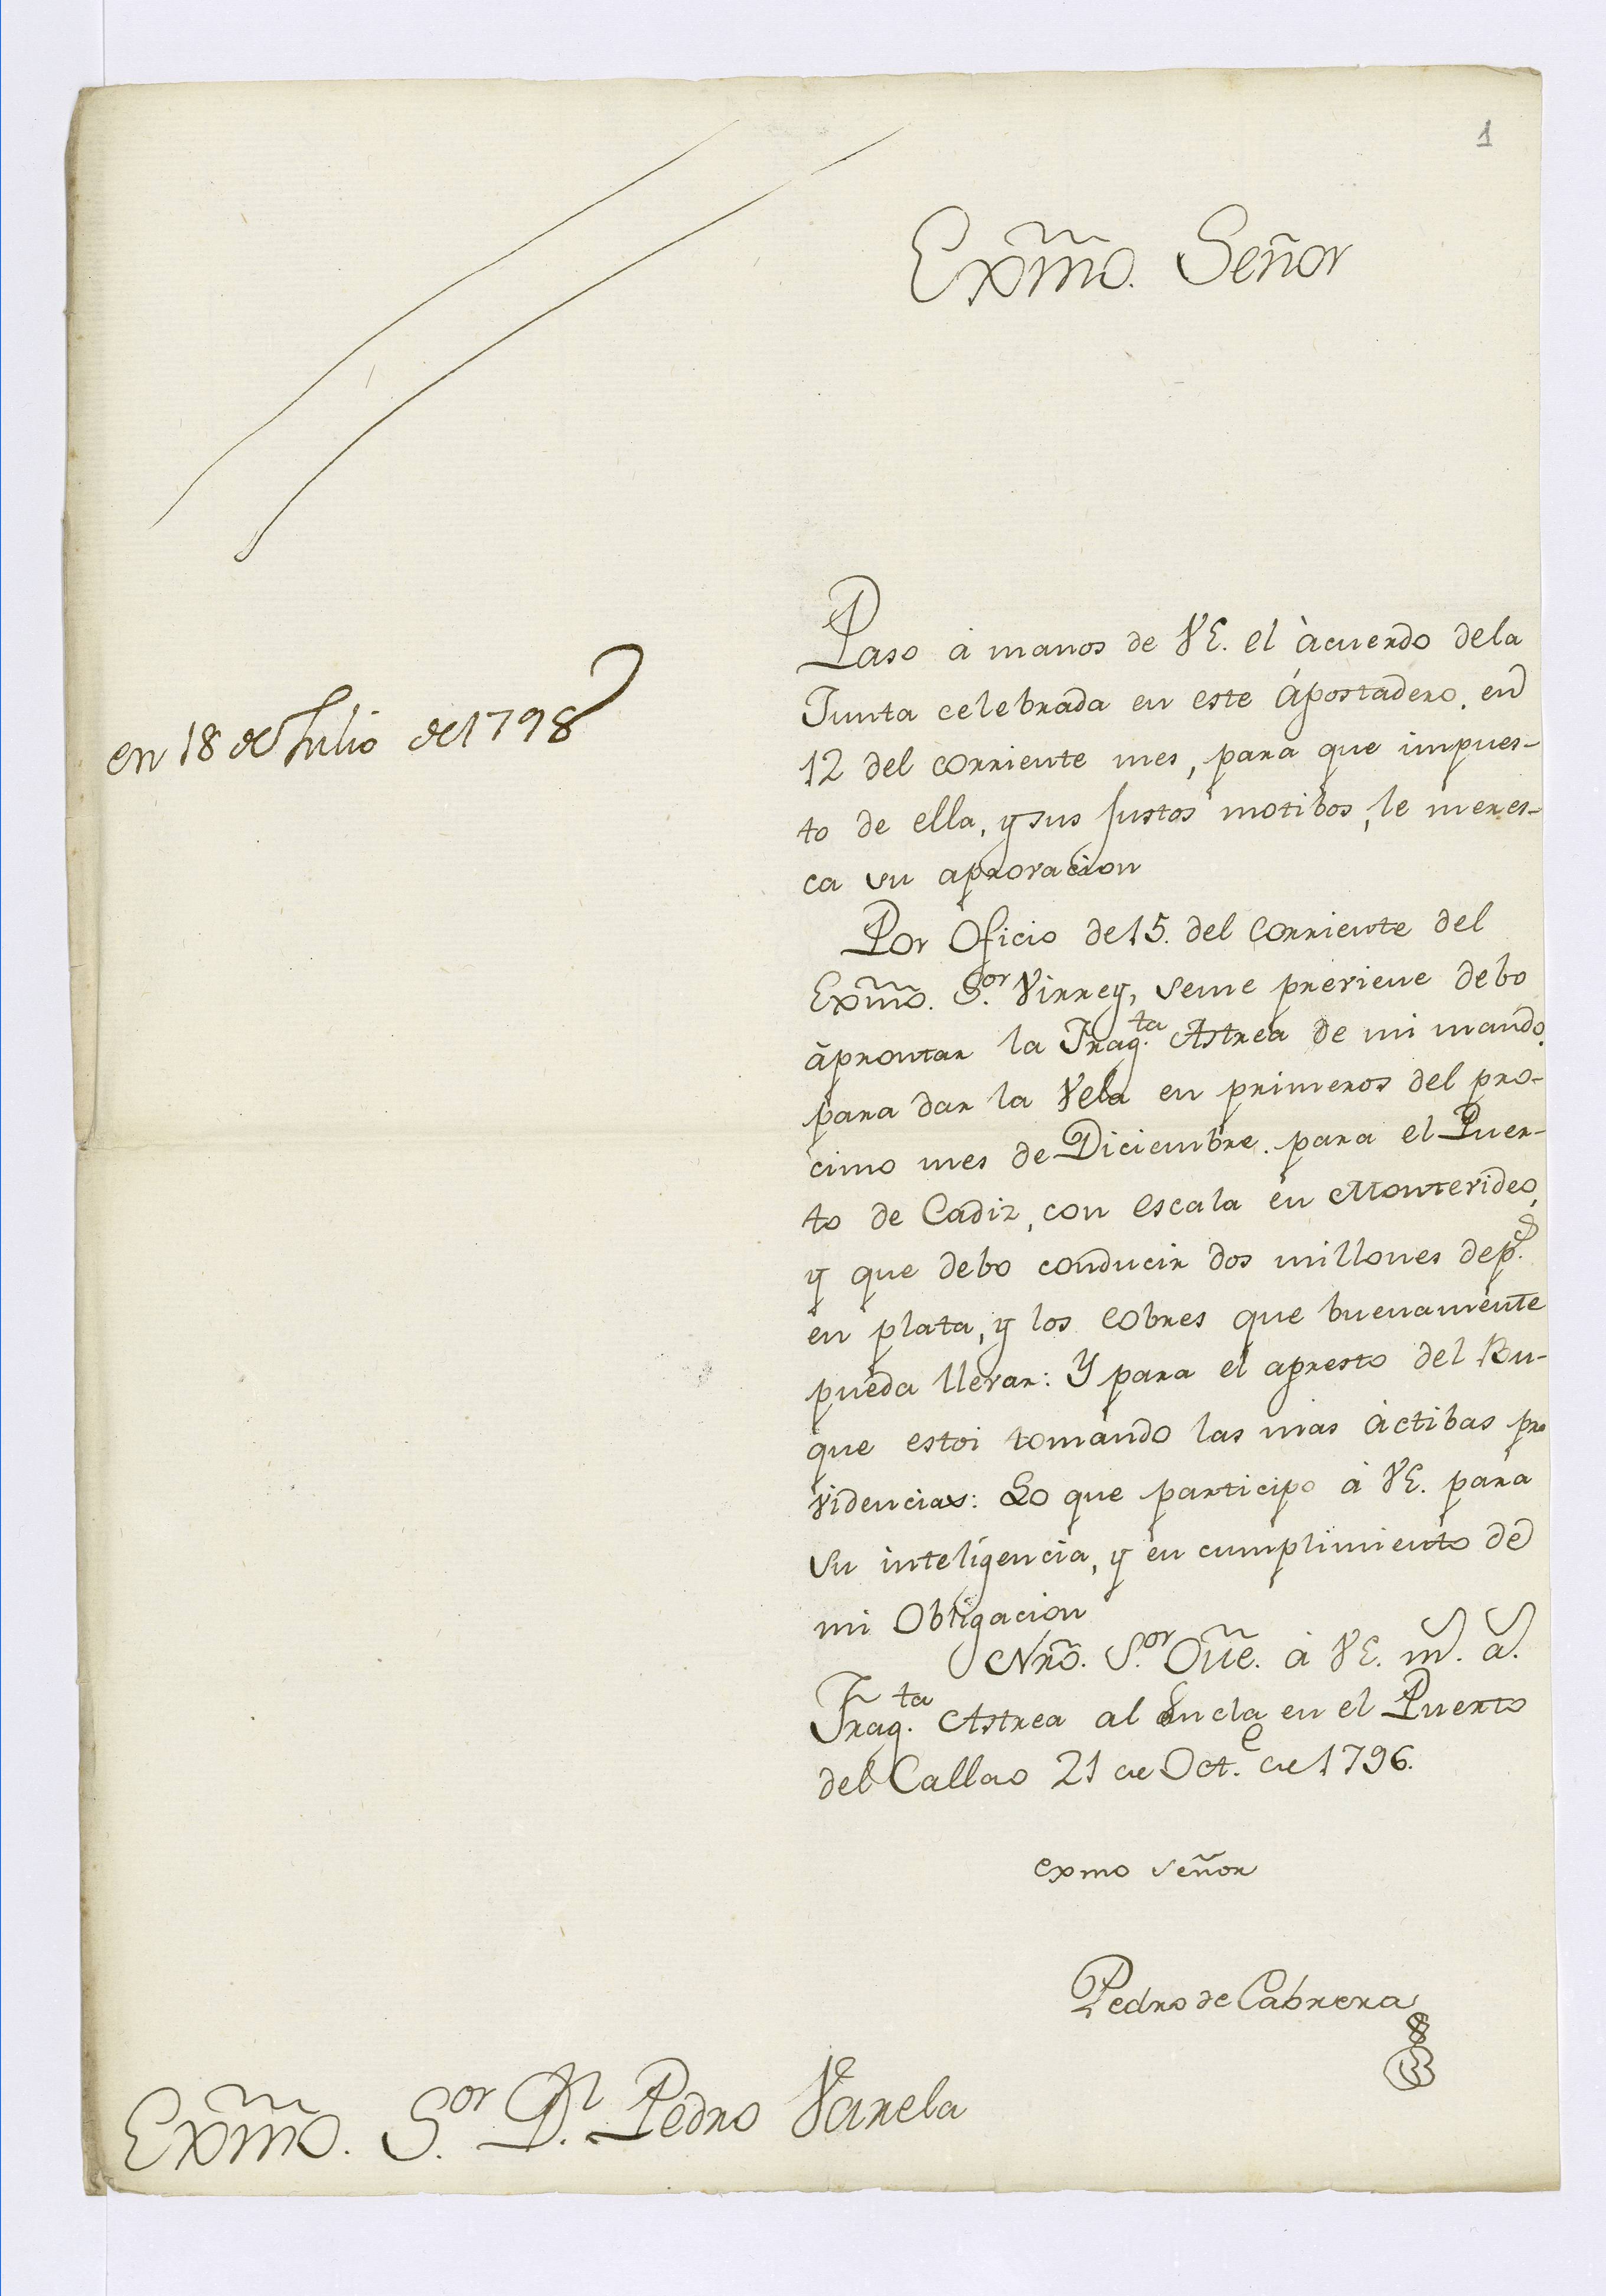 1
Exm̃o. Señor
en 18 de Julio de 1798
Paso á manos de VE. el àcuerdo dela
Junta celebrada en este ápostadero, en
12 del corriente mes, para que impues-
to de ella, y sus justos motibos, le meres-
ca su aprovacion
Por Oficio de 15. del Corriente del
Exm̃o. S.or Virrey, seme previene debo
àprontar la Frag.ta Astrea de mi mando,
para dar la Vela en primeros del pro-
cimo mes de Diciembre. para el Puer-
to de Cadiz, con escala en Montevideo,
y que debo conducir dos millones dep.s
en plata, y los cobres que buenamente
pueda llevar: Y para el apresto del Bu-
que estoi tomando las mas àctibas pro
videncias: Lo que participo à VE. para
su inteligencia, y en cumplimiento de
mi Obligacion
Nrõ. S.or Gũe. à VE. m.s a.s
Frag.ta Astrea al Ancla en el Puerto
del Callao 21 de Oct.e de 1796.
exmo señor
Pedro de Cabrera
Exm̃o. S.or D.n Pedro Varela